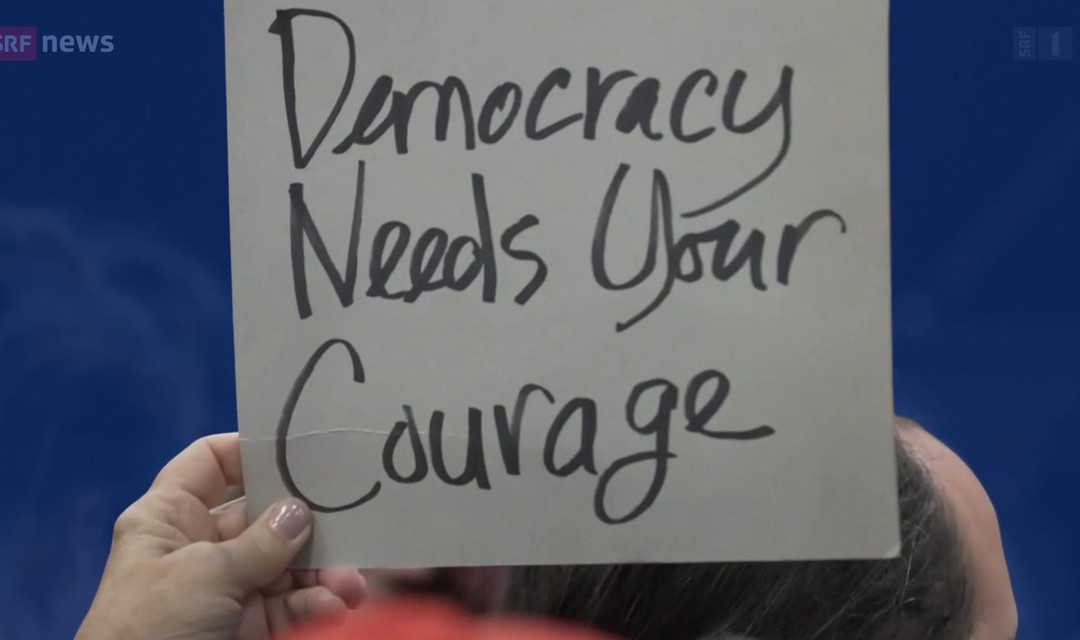 SRF news
SRF 1
Democracy
Needs Your
Courage